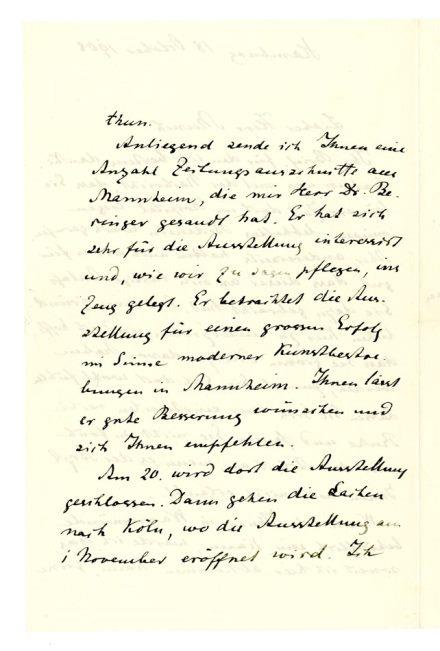 thun.
Anliegend sende ich Ihnen eine
Anzahl Zeitungsausschnitte aus
Mannheim, die mir Herr Dr. Be-
ringer gesandt hat. Er hat sich
sehr für die Ausstellung interessirt
und, wie wir zu sagen pflegen, ins
Zeug gelegt. Er betrachtet die Aus-
stellung für einen grossen Erfolg
im Sinne moderner Kunstbestre-
bungen in Mannheim. Ihnen lässt
er gute Besserung wünschen und
sich Ihnen empfehlen.
Am 20. wird dort die Ausstellung
geschlossen. Dann gehen die Sachen
nach Köln, wo die Ausstellung am
1 November eröffnet wird. Ich